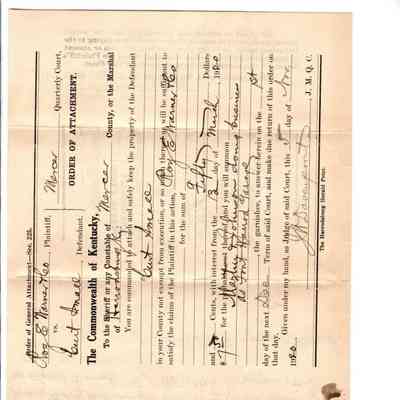 Order of General Attachment—Sec. 225.
Mercer Quarterly Court,
Plaintiff,
vs.
ORDER OF ATTACHMENT.
Curt Small, Defendant.
The Commonwealth of Kentucky,
To the Sheriff or any Constable of Mercer County, or the Marshal
of Harrodsburg
You are commanded to attach and safely keep the property of the Defendant
Curt Small
in your County not exempt from execution, or so much thereof as will be sufficient to
satisfy the claims of the Plaintiff in this action,
for the sum of Fifty Dollars
and Cents, with interest from the 13 day of March 1920
for the
therein, and you will summon
doing business
as Fort Harrod Garage
, the garnishee, to answer herein on the 1st
day of the next Dec Term of said Court, and make due return of this order on
that day.
Given under my hand, as Judge of said Court, this day of Nov
1920. J. M. Q. C.
The Harrodsburg Herald Print.